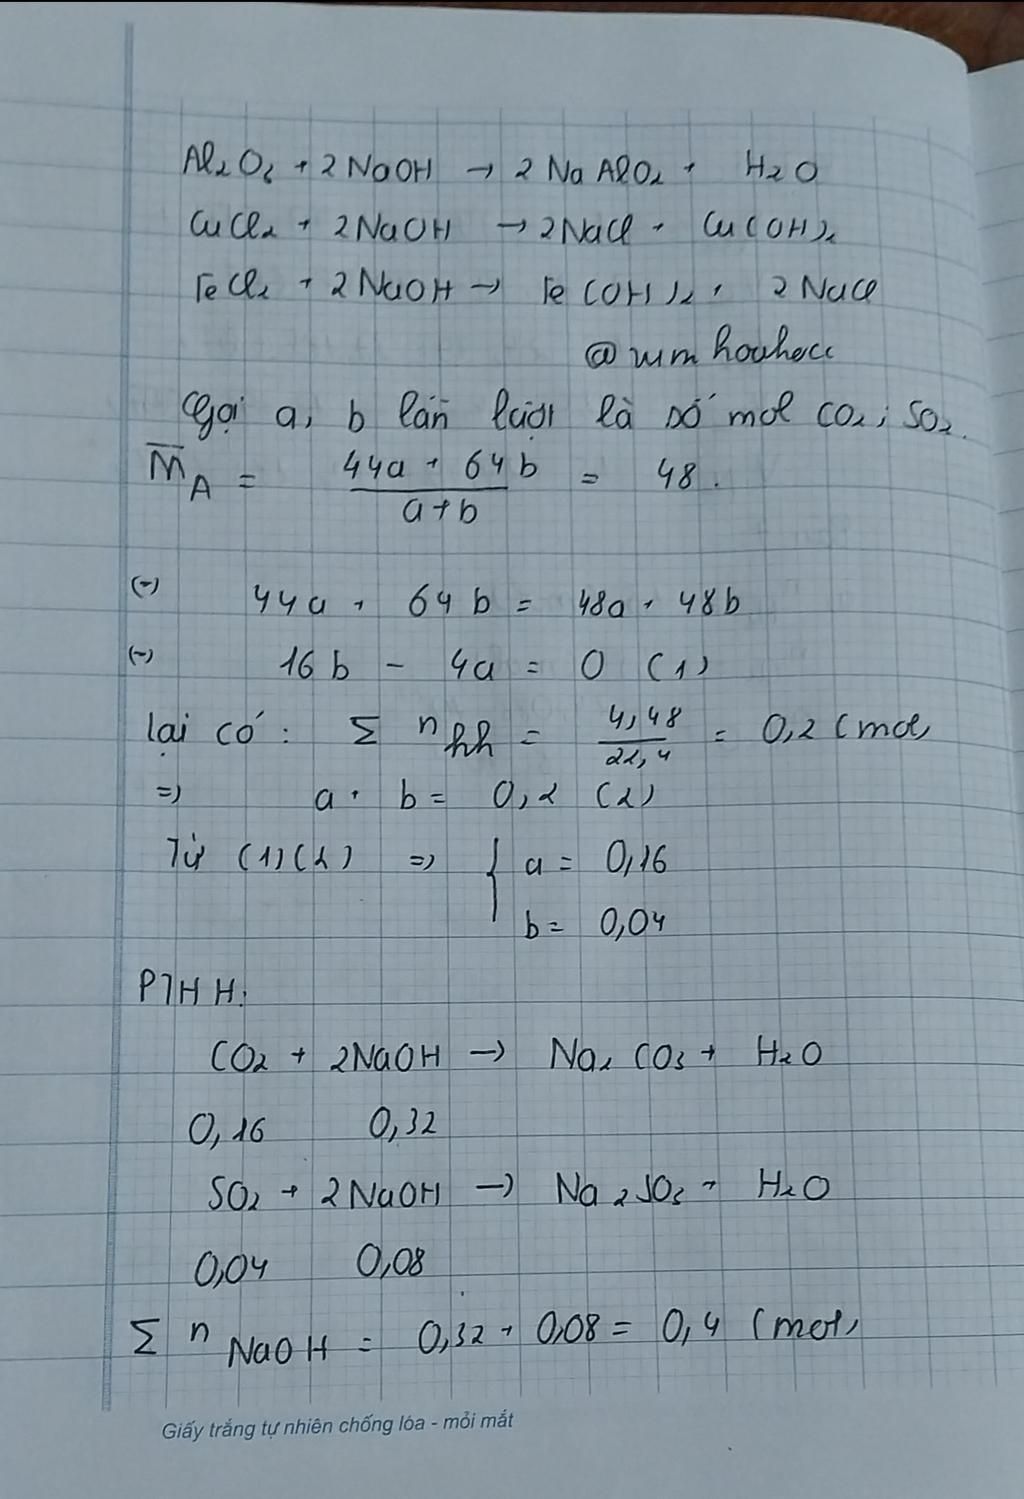 Al₂O₃ + 2NaOH → 2NaAlO₂ + H₂O
CuCl₂ + 2NaOH → 2NaCl + Cu(OH)₂
FeCl₂ + 2NaOH → Fe(OH)₂ + 2NaCl
Gọi a, b lần lượt là số mol CO₂; SO₂.
M̅A = (44a + 64b)/(a+b) = 48.
(=) 44a + 64b = 48a + 48b
(=) 16b - 4a = 0 (1)
lại có: Σ nhh = 4,48/22,4 = 0,2 (mol)
=) a + b = 0,2 (2)
Từ (1)(2) =) { a = 0,16
b = 0,04
PTHH:
CO₂ + 2NaOH → Na₂CO₃ + H₂O
0,16 0,32
SO₂ + 2NaOH → Na₂SO₃ + H₂O
0,04 0,08
Σ nNaOH = 0,32 + 0,08 = 0,4 (mol)
Giấy trắng tự nhiên chống lóa - mỏi mắt